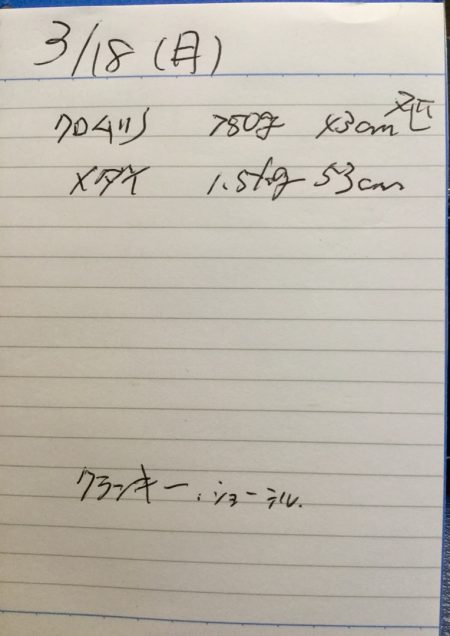 3/18 (月)
クロムツ 780g 43cm
メダイ 1.5kg 53cm
クランキー、ショーテル.